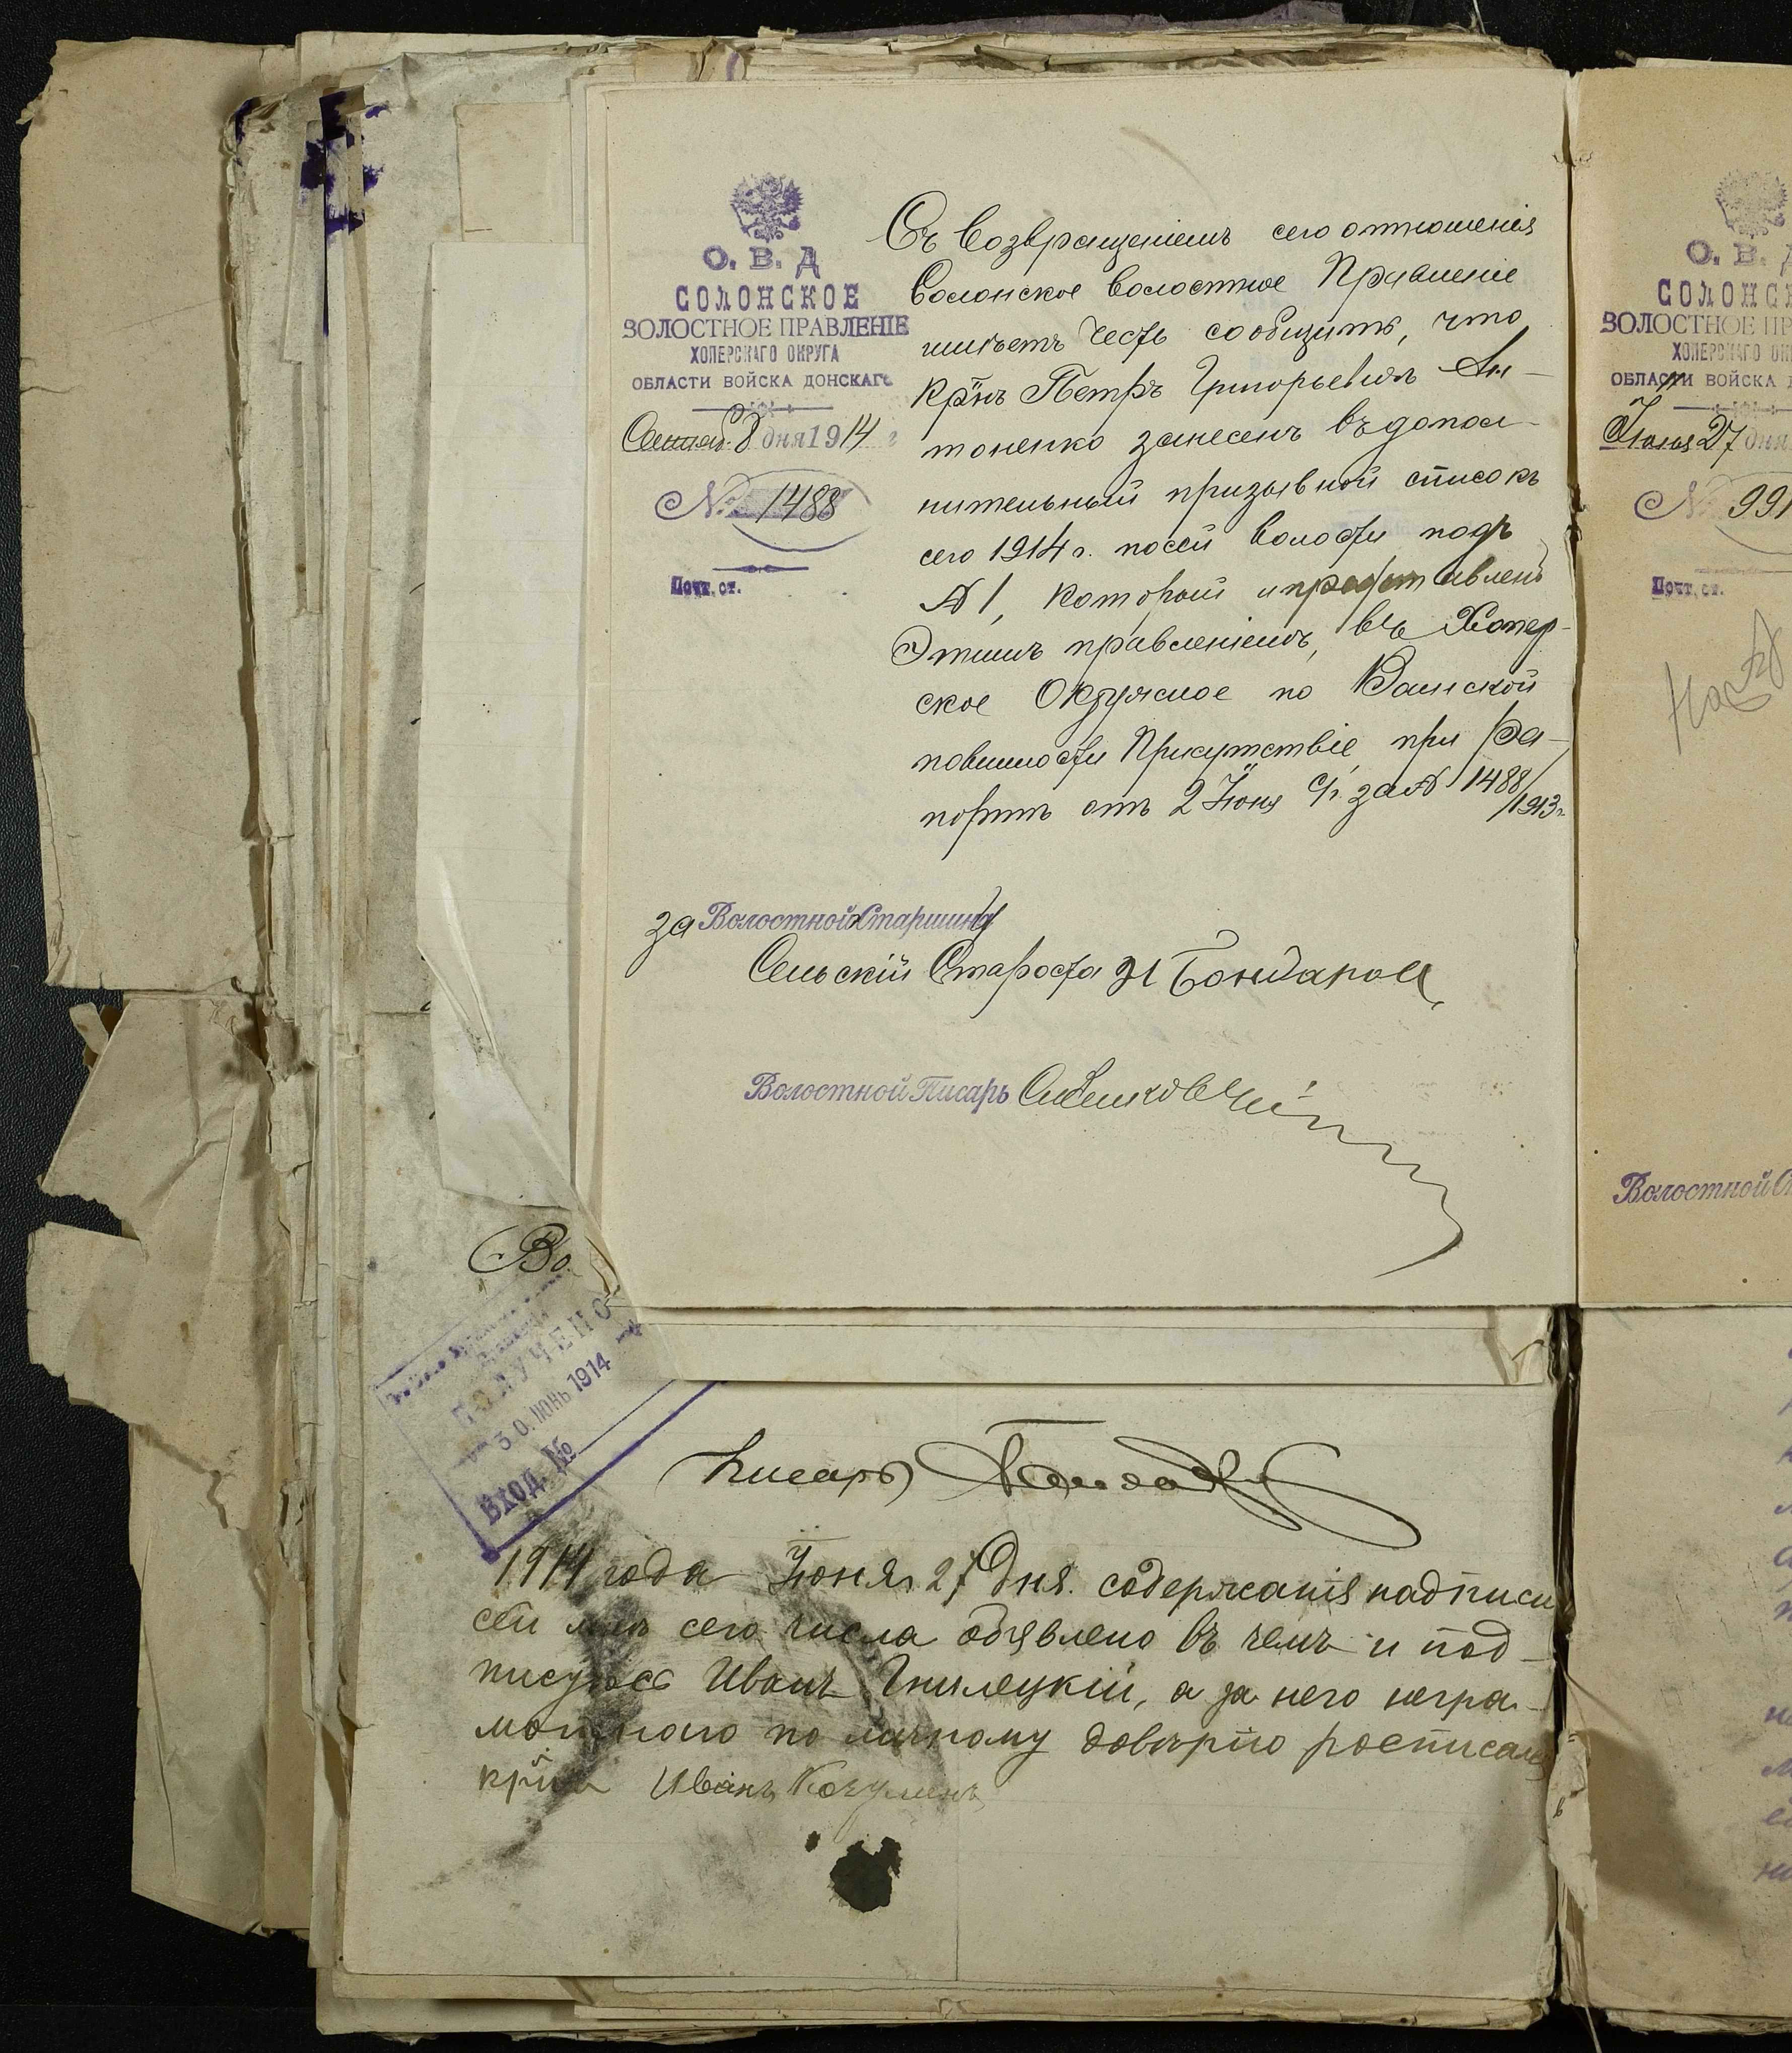 О. В. Д
СОЛОНСКОЕ
ВОЛОСТНОЕ ПРАВЛЕНІЕ
ХОПЕРСКАГО ОКРУГА
ОБЛАСТИ ВОЙСКА ДОНСКАГО
Сентяб. 8 дня 1914 г
№ 1488
Почт. ст.
Съ возвращеніемъ сего отношенія
Солонское волостное Правленіе
имѣетъ честь сообщить, что
кр̃нъ Петръ Григорьевичъ Ан-
тоненко занесенъ въ допол-
нительный призывной списокъ
сего 1914 г. по сей волости подъ
№ 1, который и представленъ
Этимъ правленіемъ, въ Хопер-
ское Окружное по Воинской
повинности Присутствіе, при ра-
портѣ отъ 2 Іюня с/г. за № 1488/1913 г.
за Волостной Старшина
Сельскій Староста И Бондарев
Волостной Писарь
Во
ПОЛУЧЕНО
30. ІЮНЬ 1914
ВХОД. №
Писарь
1914 года Іюня 27 дня. содержанія надписи
сей мнѣ сего числа объявлено въ чемъ и под-
писуюсь Иванъ Гнилецкій, а за него негра-
мотнаго по личному довѣрію росписался
кр̃нъ Иванъ
О. В. Д
СОЛОНСК
ВОЛОСТНОЕ ПР
ХОПЕРСКАГО ОК
ОБЛАСТИ ВОЙСКА Д
Іюня 27 дня
№ 991
Почт. ст.
На №
Волостной С